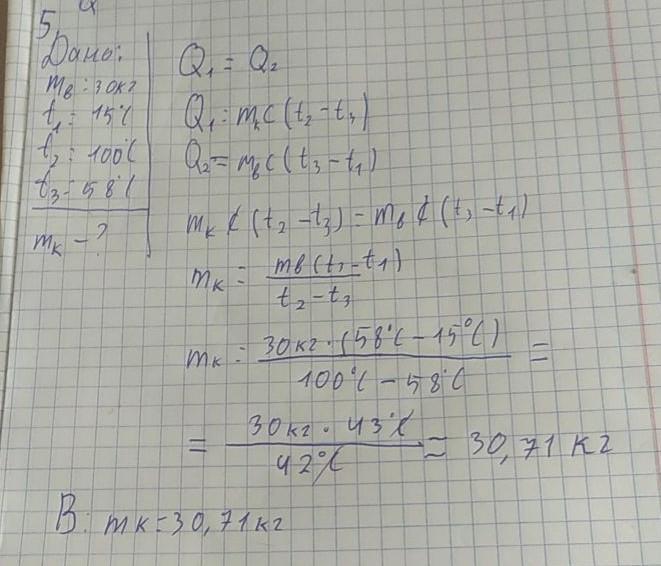 5.
Дано:
mв = 30кг
t₁ = 15°C
t₂ = 100°C
t₃ = 58°C
mк - ?
Q₁ = Q₂
Q₁ = mкc(t₂ - t₃)
Q₂ = mвc(t₃ - t₁)
mк c (t₂ - t₃) = mв c (t₃ - t₁)
mк = mв(t₃ - t₁) / t₂ - t₃
mк = 30кг · (58°C - 15°C) / 100°C - 58°C =
= 30кг · 43°C / 42°C ≈ 30,71 кг
В: mк = 30,71кг